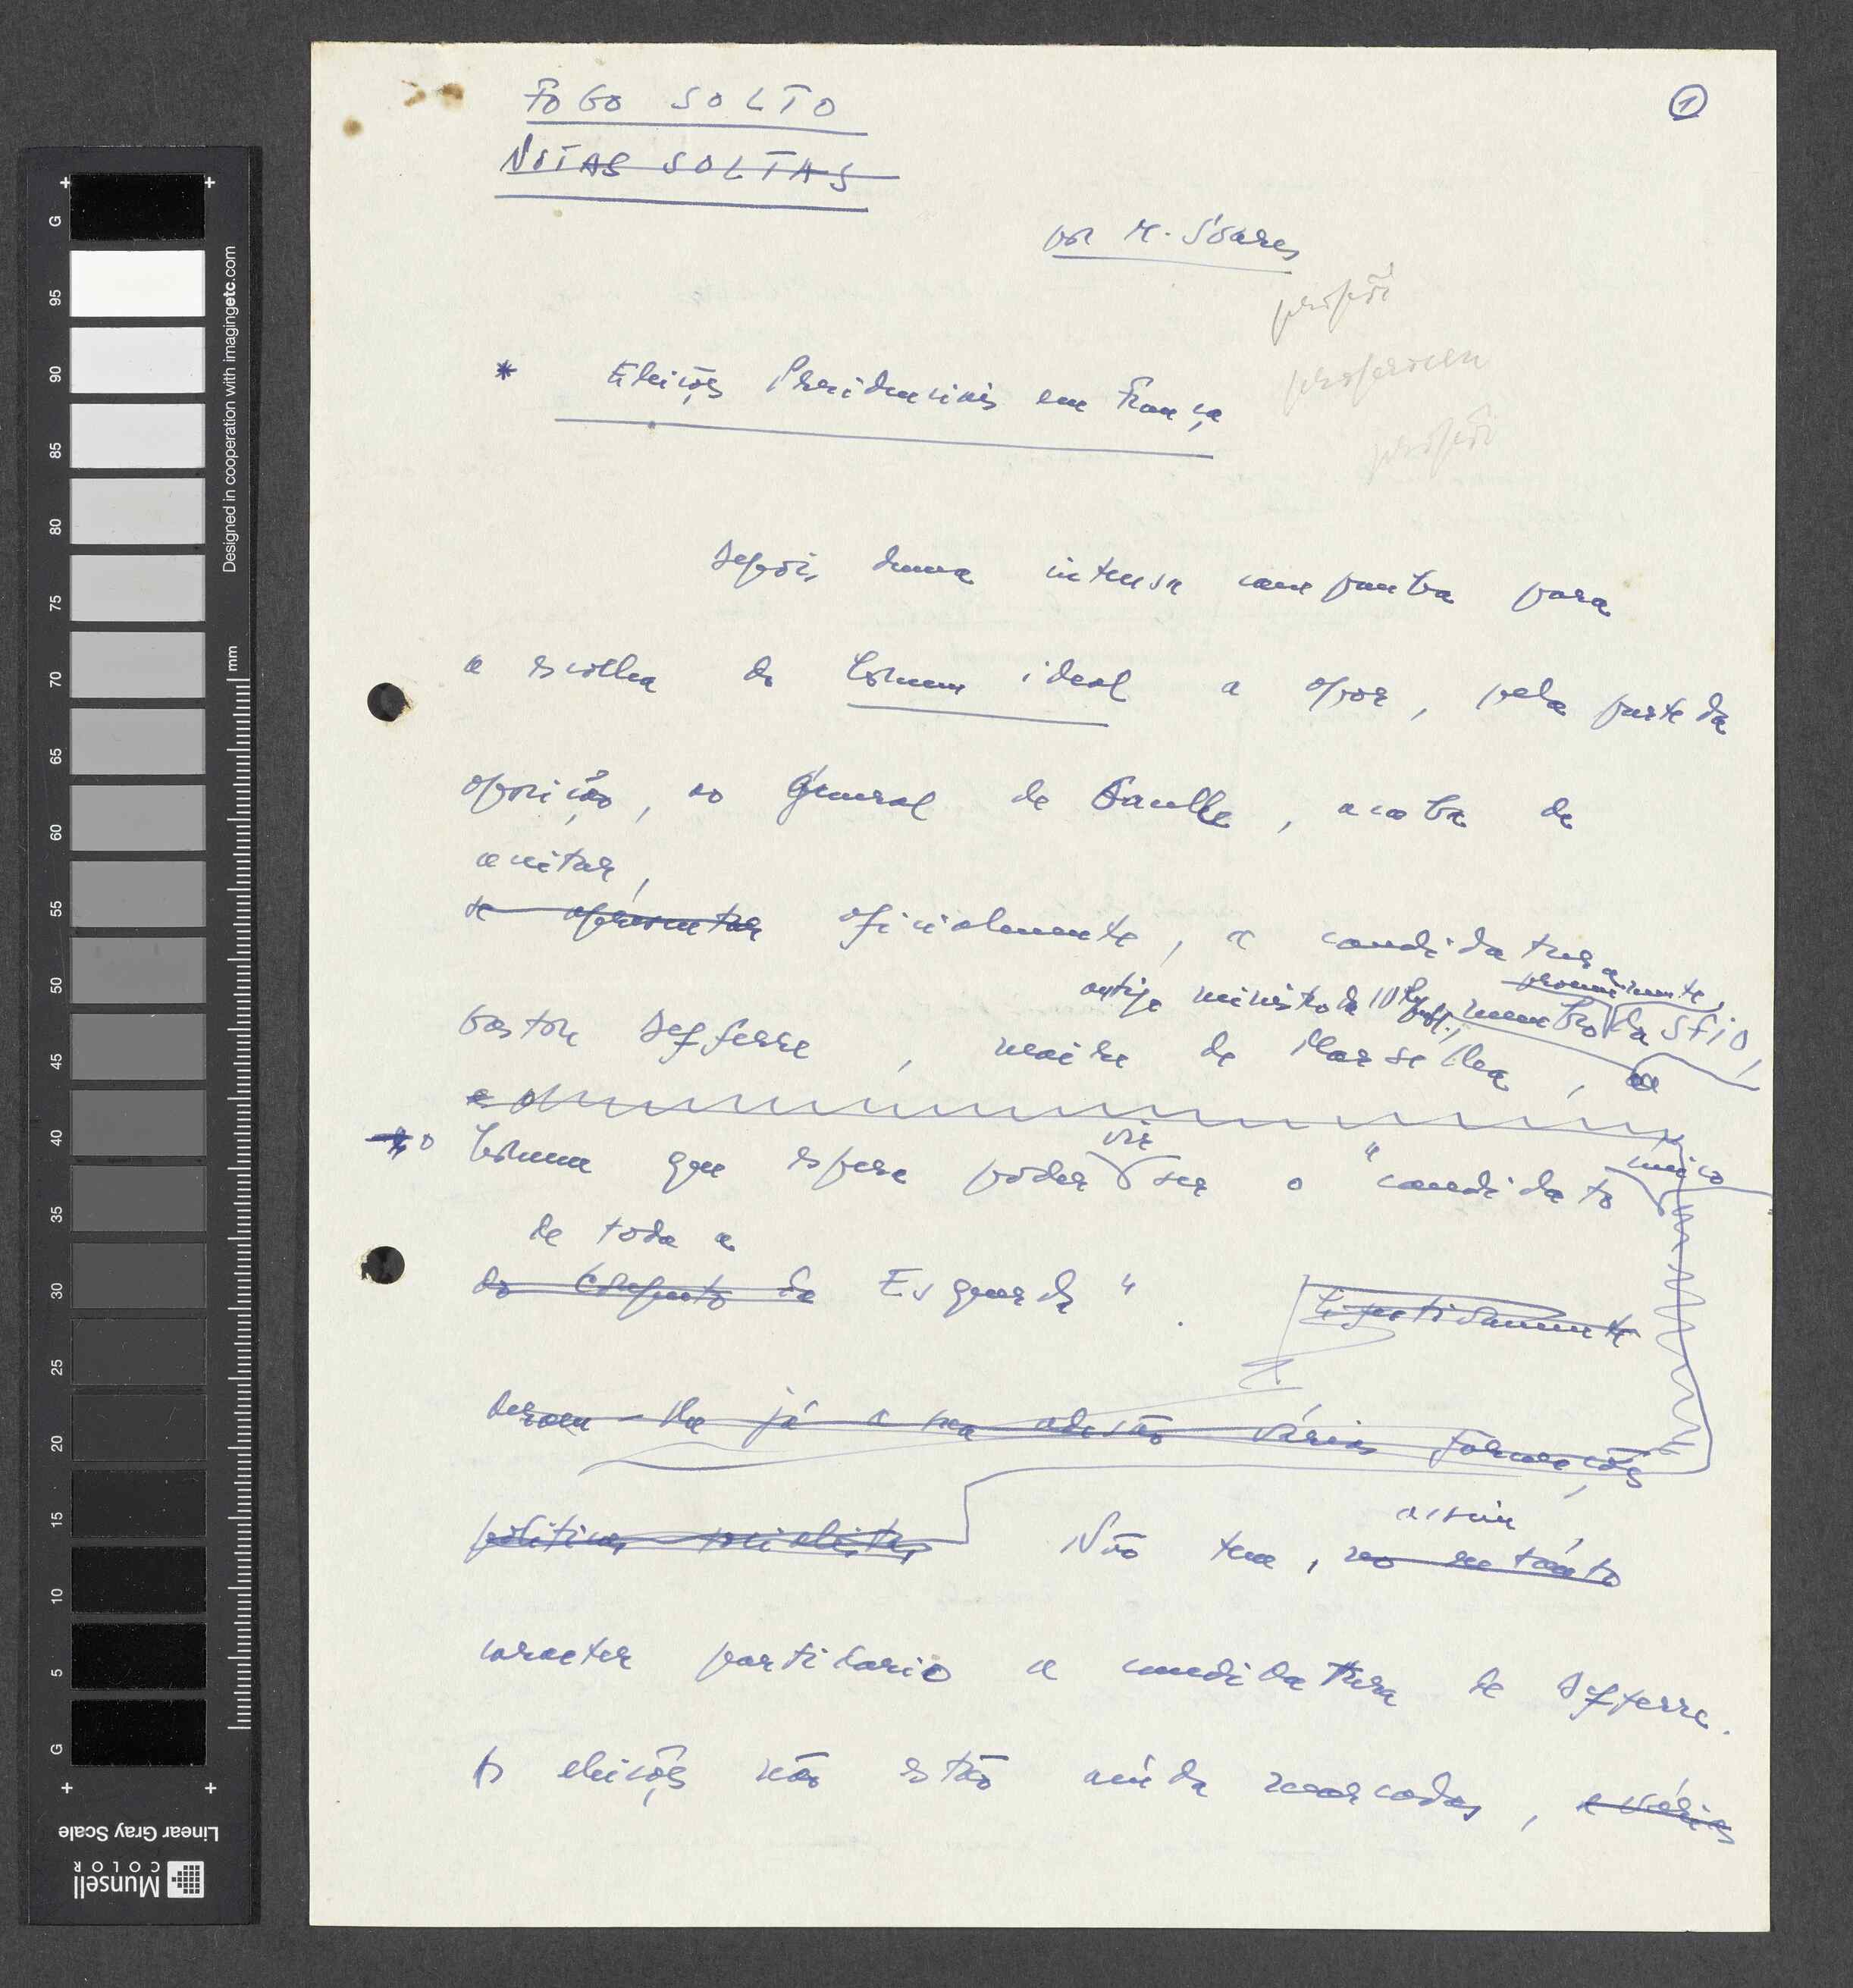 FOGO SOLTO
NOTAS SOLTAS
1
por M. Soares
* Eleições Presidenciais em França
Depois duma intensa campanha para
a escolha do homem ideal a opor, pela parte da
oposição, ao General de Gaulle, acaba de
aceitar,
se apresentar oficialmente, a candidatura
antigo ministro da IV Rep., membro proeminente, da SFIO,
Gaston Defferre, maire de Marselha,
o homem que espera poder vir ser o "candidato único
de toda a
do conjunto da Esquerda".
Repetidamente
deram-lhe já a sua adesão várias formações
políticas socialistas, Não tem, assim,
no entanto
caracter partidario a candidatura de Defferre.
As eleições não estão ainda marcadas, e várias
G
95
90
85
80
75
70
65
60
55
50
45
40
35
30
25
20
15
10
5
G
mm
Designed in cooperation with imagingetc.com
Linear Gray Scale
Munsell
COLOR